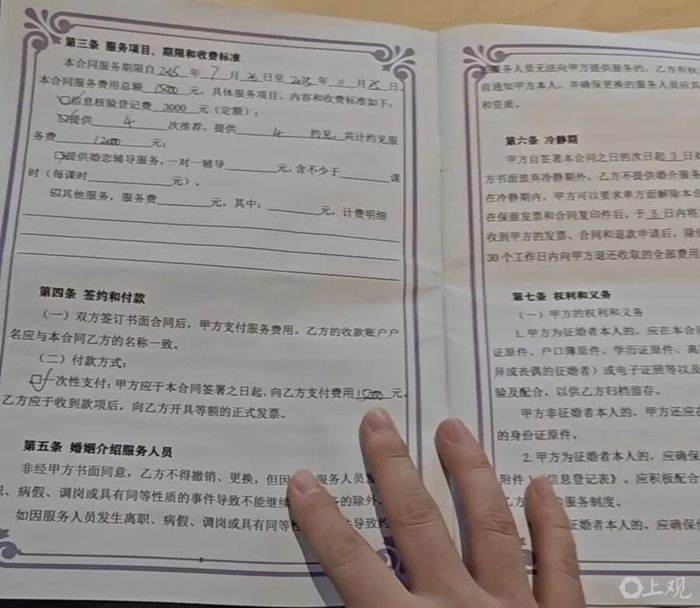 第三条 服务项目、期限和收费标准
本合同服务期限自2025年7月26日至2025年11月25日,
本合同服务费用总额 15000 元,具体服务项目、内容和收费标准如下:
信息核验登记费 3000 元(定额);
提供 4 次推荐,提供 4 约见,共计约见服
务费 12000 元;
提供婚恋辅导服务,一对一辅导 元,含不少于 课
时(每课时 元)。
其他服务,服务费 元,其中: 元,计费明细
第四条 签约和付款
(一)双方签订书面合同后,甲方支付服务费用。乙方的收款账户户
名应与本合同乙方的名称一致。
(二)付款方式:
一次性支付:甲方应于本合同签署之日起,向乙方支付费用15000元,
乙方应于收到款项后,向乙方开具等额的正式发票。
第五条 婚姻介绍服务人员
非经甲方书面同意,乙方不得撤销、更换,但因 服务人员发
职、病假、调岗或具有同等性质的事件导致不能继续 务的除外
如因服务人员发生离职、病假、调岗或具有同等性 件导致约
服务人员无法向甲方提供服务的,乙方有权
前通知甲方本人,并确保更换的服务人员应具
和资质。
第六条 冷静期
甲方自签署本合同之日的次日起 3 日
方书面放弃冷静期外,乙方不提供婚介服务
在冷静期内,甲方可以要求单方面解除本合
在保留发票和合同复印件后,于 5 日内将
收到甲方的发票、合同和退款申请后,除
30 个工作日内向甲方退还收取的全部费用
第七条 权利和义务
(一)甲方的权利和义务
1.甲方为征婚者本人的,应在本合
证原件、户口簿原件、学历证原件、离
异或丧偶的征婚者)或电子证照等以及
验及配合,以供乙方归档留存。
甲方非征婚者本人的,甲方还应在
的身份证原件。
2.甲方为征婚者本人的,应确保
附件1《信息登记表》,应积极配合
乙方 服务制度。
征婚者本人的,应确保
上观